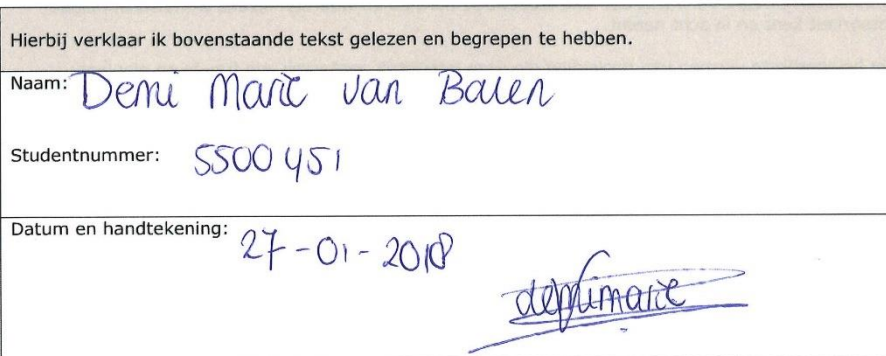 Hierbij verklaar ik bovenstaande tekst gelezen en begrepen te hebben.
Naam: Demi Marie van Balen
Studentnummer: 5500451
Datum en handtekening: 27-01-2018
demimarie